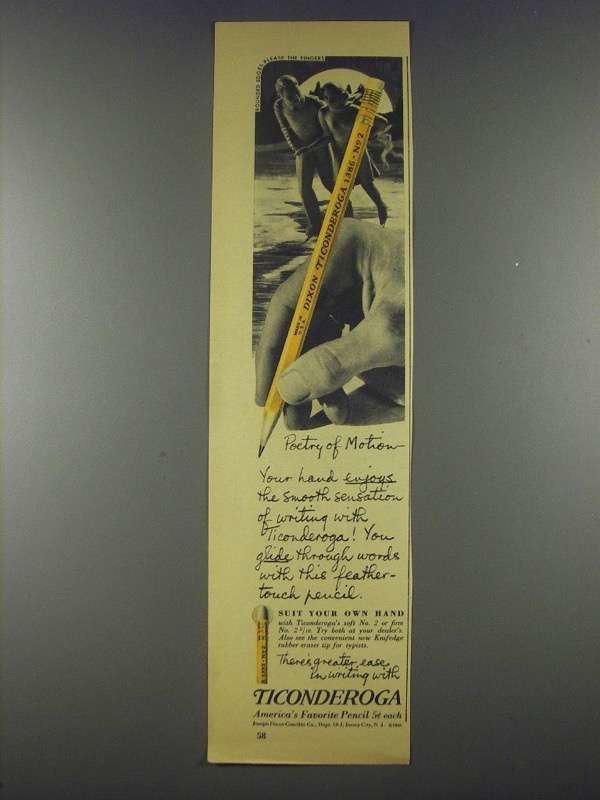 ROUNDED EDGES PLEASE THE FINGERS
DIXON TICONDEROGA 1386 - Nº 2
MADE IN
U.S.A.
Poetry of Motion
Your hand enjoys
the smooth sensation
of writing with
Ticonderoga! You
glide through words
with this feather-
touch pencil.
SUIT YOUR OWN HAND
with Ticonderoga's soft No. 2 or firm
No. 2 5/10. Try both at your dealer's.
Also see the convenient new Knifedge
rubber eraser tip for typists.
There's greater ease
in writing with
TICONDEROGA
America's Favorite Pencil 5¢ each
Joseph Dixon Crucible Co., Dept. Jersey City, N. J.
58